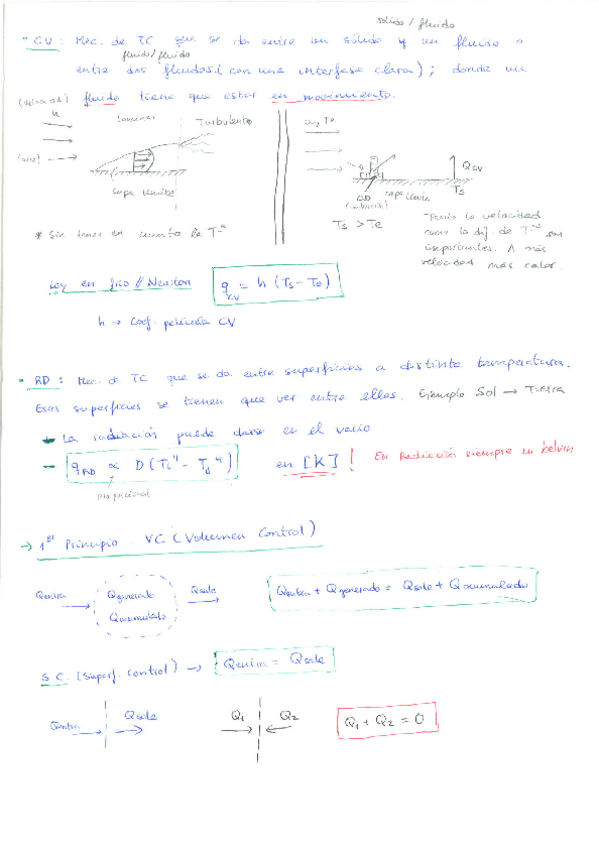 sólido / fluido
• CV: Mec. de TC que se da entre un sólido y un fluido o
fluido/fluido
entre dos fluidos (con una interfase clara); donde un
fluido tiene que estar en movimiento.
Laminar
Turbulento
u, Te
Qcv
superficie
superficie
CD
Ts
Ts > Te
* Sin tener en cuenta la Tª
*Tanto la velocidad
como la dif. de Tªs son
importantes. A más
velocidad más calor.
Ley en frío // Newton
qcv = h (Ts - Te)
h → Coef. película CV
• RD: Mec. de TC que se da entre superficies a distinta temperatura.
Esas superficies se tienen que ver entre ellas. Ejemplo Sol → Tierra
La radiación puede darse en el vacío
qRD ∝ D (T⁴ - T⁴)
en [K] !
En Radiación siempre en Kelvin
proporcional
→ 1er Principio VC (Volumen Control)
Qentra
Qgenerado
Qacumulado
Qsale
Qentra + Qgenerado = Qsale + Qacumulado
S.C. (Superf. Control) → Qentra = Qsale
Qentra
Qsale
Q1
Q2
Q1 + Q2 = 0